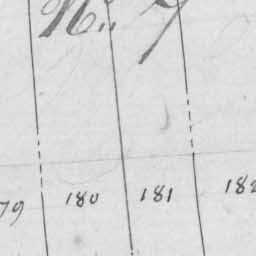 No. 7
79 180 181 182